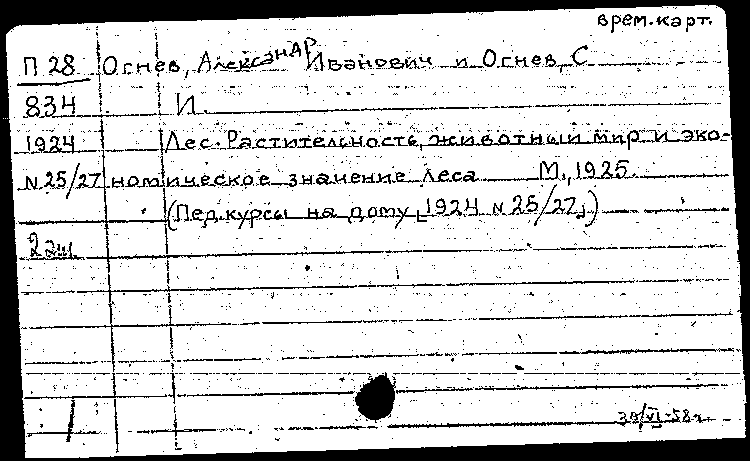 врем.карт.
П 28 Огнев, Александр Иванович и Огнев, С
834 И.
1924 Лес. Растительность, животный мир и эко-
N 25/27 номическое значение леса М., 1925.
(Пед.курсы на дому, 1924 N 25/27,)
2 эк.
30/VI-58г.